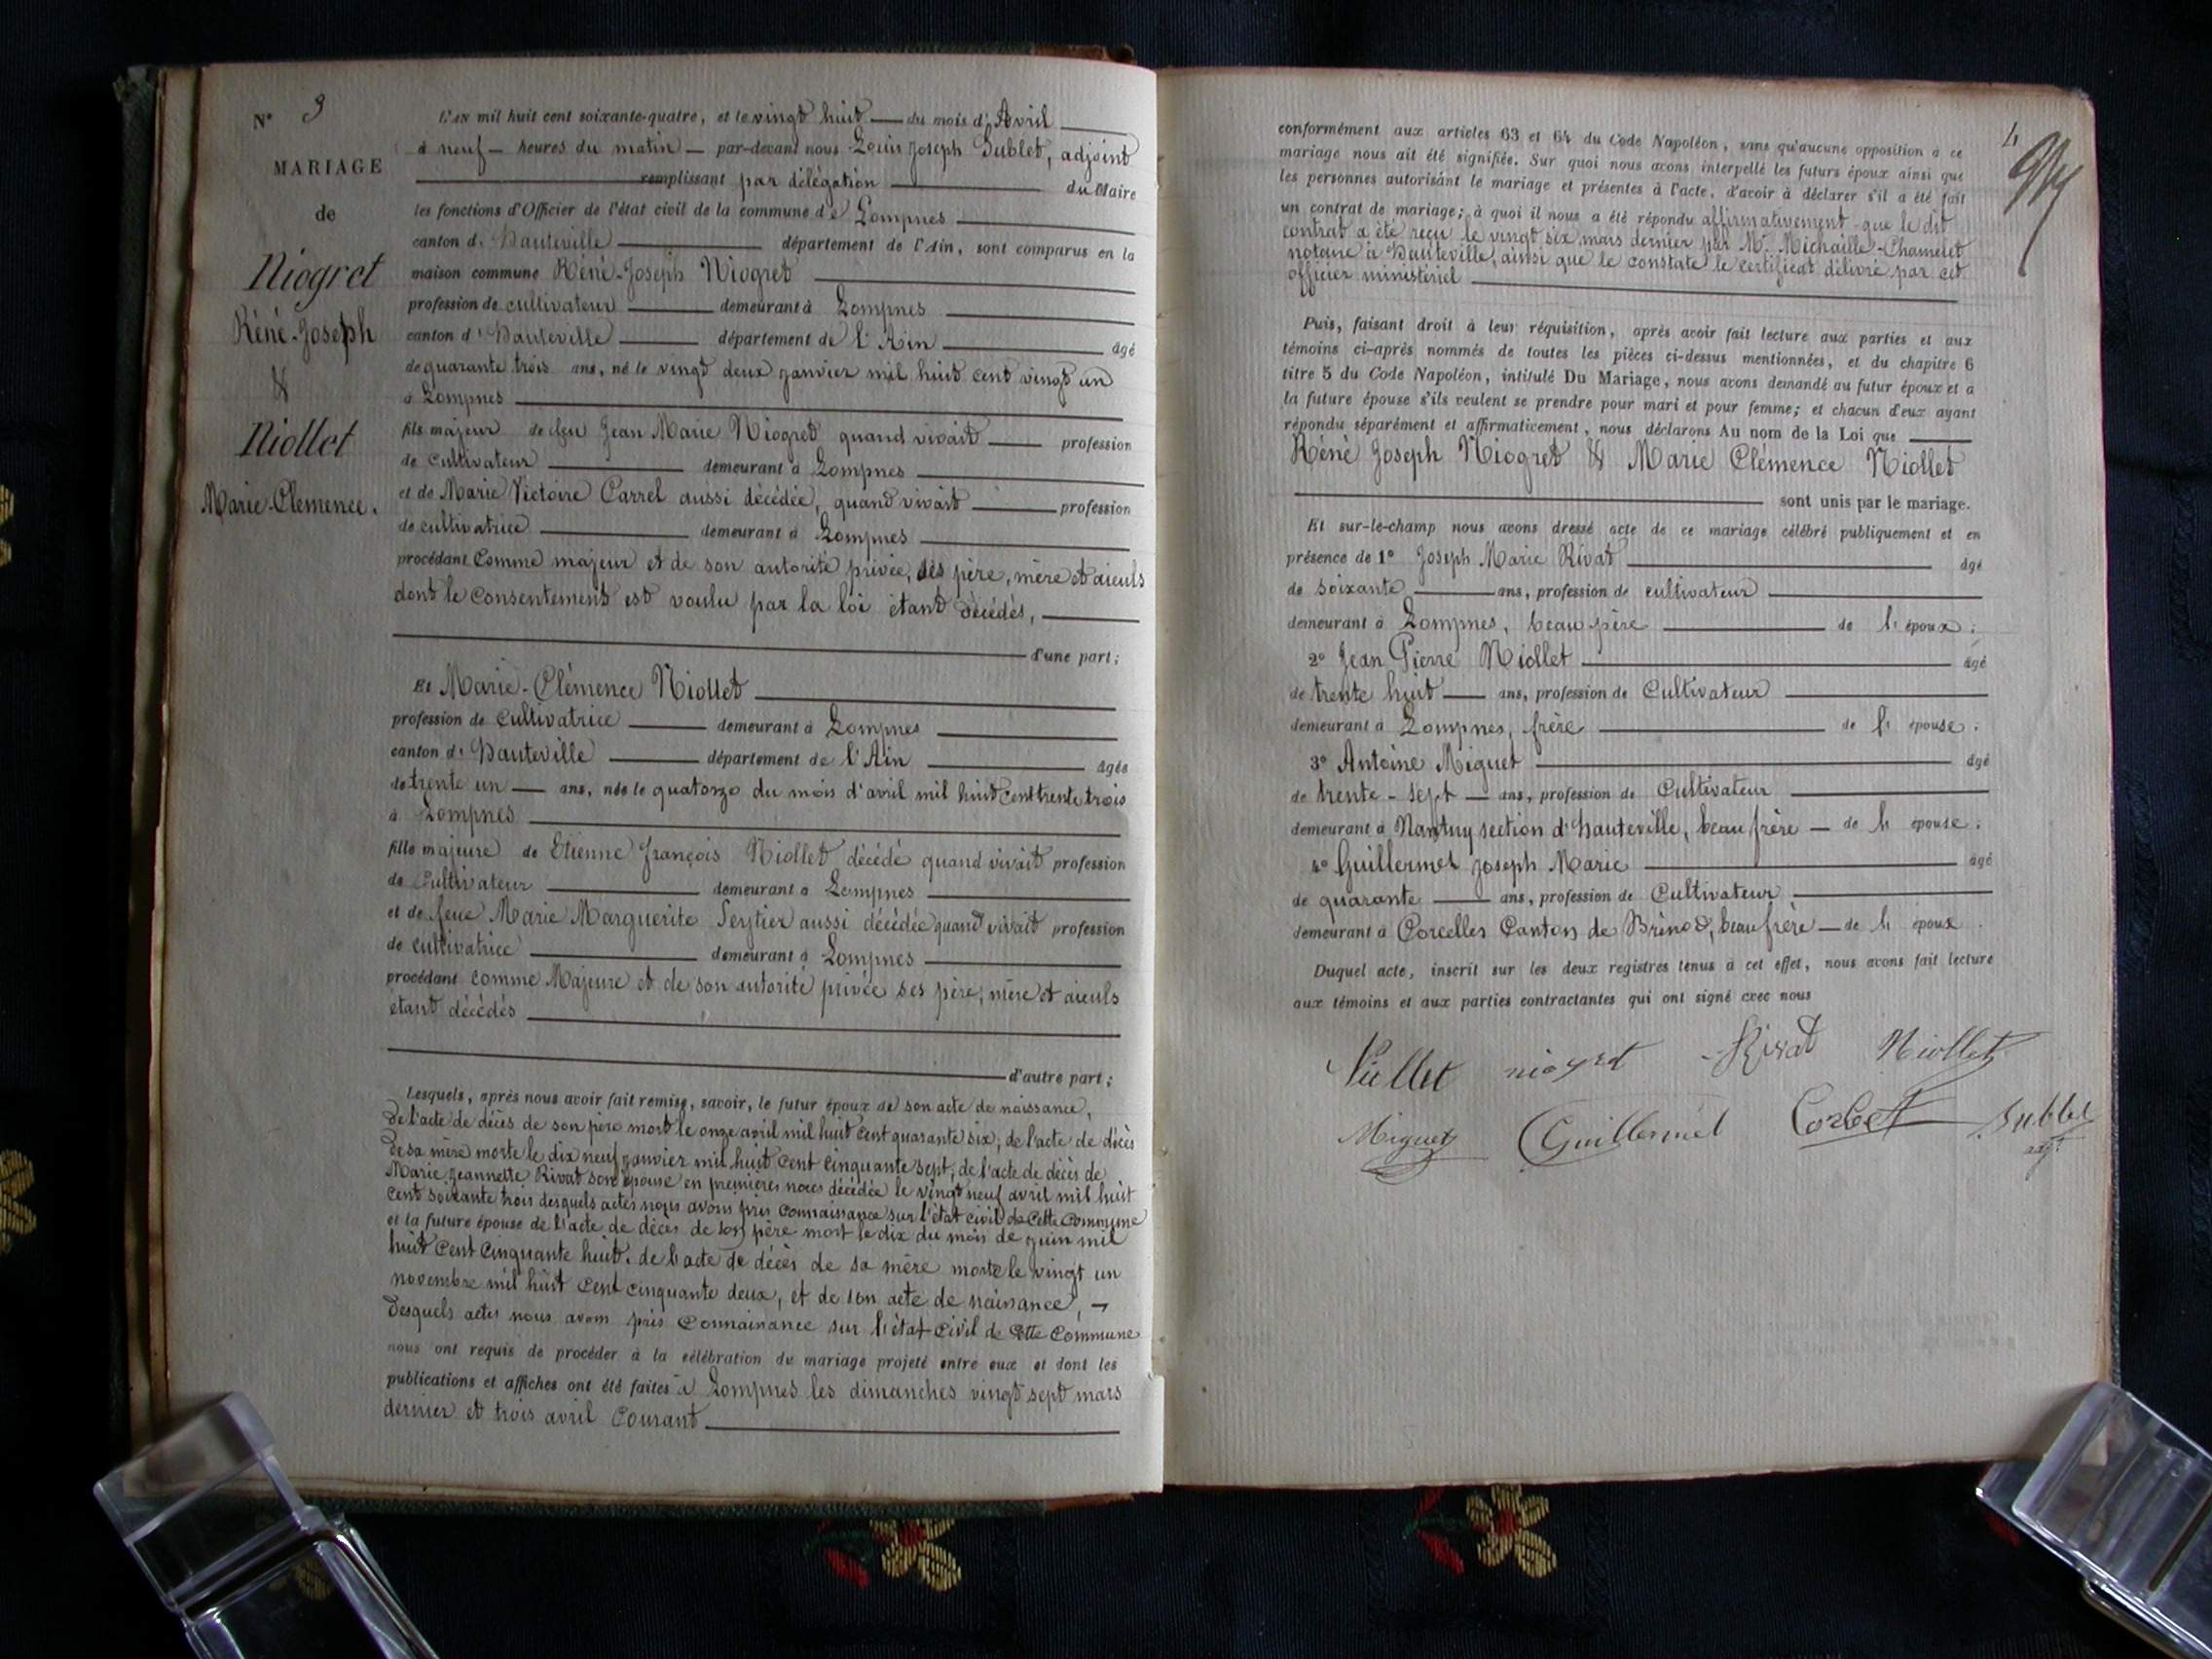 N° 3
MARIAGE
de
Niogret
Réné-Joseph
&
Niollet
Marie-Clémence.
L'AN mil huit cent soixante-quatre, et le vingt huit du mois d'Avril
à neuf heures du matin par-devant nous Louis Joseph Sublet, adjoint
remplissant par délégation du Maire
les fonctions d'Officier de l'état civil de la commune de Lompnes
canton d'Hauteville département de l'Ain, sont comparus en la
maison commune Réné-Joseph Niogret
profession de cultivateur demeurant à Lompnes
canton d'Hauteville département de l'Ain âgé
de quarante trois ans, né le vingt deux janvier mil huit cent vingt un
à Lompnes
fils majeur de feu Jean Marie Niogret quand vivait profession
de cultivateur demeurant à Lompnes
et de Marie Victoire Carrel aussi décédée, quand vivait profession
de cultivatrice demeurant à Lompnes
procédant Comme majeur et de son autorité privée, ses père, mère et aieuls
dont le Consentement est voulu par la loi étant décédés,
d'une part;
Et Marie-Clémence Niollet
profession de Cultivatrice demeurant à Lompnes
canton d'Hauteville département de l'Ain âgée
de trente un ans, née le quatorze du mois d'avril mil huit cent trente trois
à Lompnes
fille majeure de Etienne François Niollet décédé quand vivait profession
de Cultivateur demeurant à Lompnes
et de feue Marie Marguerite Seytier aussi décédée quand vivait profession
de cultivatrice demeurant à Lompnes
procédant comme Majeure et de son autorité privée ses père, mère et aieuls
étant décédés
d'autre part;
Lesquels, après nous avoir fait remise, savoir, le futur époux de son acte de naissance,
de l'acte de décès de son père mort le onze avril mil huit cent quarante six; de l'acte de décès
de sa mère morte le dix neuf janvier mil huit cent cinquante sept; de l'acte de décès de
Marie Jeannette Rivat son épouse en premières noces décédée le vingt neuf avril mil huit
cent soixante trois desquels actes nous avons pris connaissance sur l'état civil de cette Commune
et la future épouse de l'acte de décès de son père mort le dix du mois de juin mil
huit Cent Cinquante huit. de l'acte de décès de sa mère morte le vingt un
novembre mil huit cent cinquante deux, et de son acte de naissance,
desquels actes nous avons pris Connaissance sur l'état civil de Cette Commune
nous ont requis de procéder à la célébration du mariage projeté entre eux et dont les
publications et affiches ont été faites à Lompnes les dimanches vingt sept mars
dernier et trois avril Courant
4
conformément aux articles 63 et 64 du Code Napoléon, sans qu'aucune opposition à ce
mariage nous ait été signifiée. Sur quoi nous avons interpellé les futurs époux ainsi que
les personnes autorisant le mariage et présentes à l'acte, d'avoir à déclarer s'il a été fait
un contrat de mariage; à quoi il nous a été répondu affirmativement que le dit
contrat a été reçu le vingt six mars dernier par M. Michaille-Chamelet
notaire à Hauteville, ainsi que le constate le certificat délivré par cet
officier ministériel
Puis, faisant droit à leur réquisition, après avoir fait lecture aux parties et aux
témoins ci-après nommés de toutes les pièces ci-dessus mentionnées, et du chapitre 6
titre 5 du Code Napoléon, intitulé Du Mariage, nous avons demandé au futur époux et a
la future épouse s'ils veulent se prendre pour mari et pour femme; et chacun d'eux ayant
répondu séparément et affirmativement, nous déclarons Au nom de la Loi que
Réné Joseph Niogret & Marie Clémence Niollet
sont unis par le mariage.
Et sur-le-champ nous avons dressé acte de ce mariage célébré publiquement et en
présence de 1° Joseph Marie Rivat âgé
de soixante ans, profession de cultivateur
demeurant à Lompnes, beau père de l'époux;
2° Jean Pierre Niollet âgé
de trente huit ans, profession de Cultivateur
demeurant à Lompnes, frère de l'épouse;
3° Antoine Miguet âgé
de trente-sept ans, profession de Cultivateur
demeurant à Nantuy section d'Hauteville, beau frère de l'épouse;
4° Guillermet Joseph Marie âgé
de quarante ans, profession de Cultivateur
demeurant à Corcelles Canton de Brénod, beau frère de l'époux.
Duquel acte, inscrit sur les deux registres tenus à cet effet, nous avons fait lecture
aux témoins et aux parties contractantes qui ont signé avec nous
Niollet niogret Rivat Niollet
Miguet Guillermet Corbet Sublet
adjt